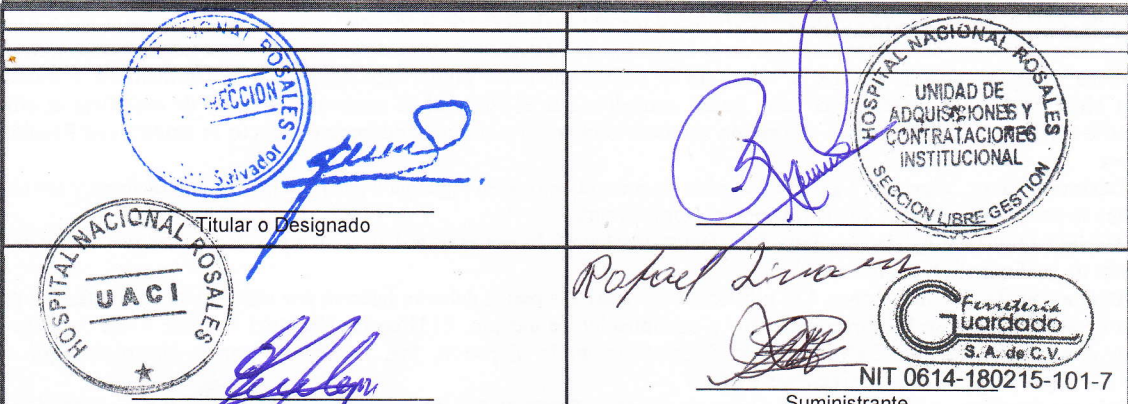 ROSALES
Salvador
Titular o Designado
HOSPITAL NACIONAL ROSALES
UNIDAD DE
ADQUISICIONES Y
CONTRATACIONES
INSTITUCIONAL
SECCION LIBRE GESTION
HOSPITAL NACIONAL ROSALES
UACI
Rafael
Ferretería
Guardado
S.A. de C.V.
NIT 0614-180215-101-7
Suministrante